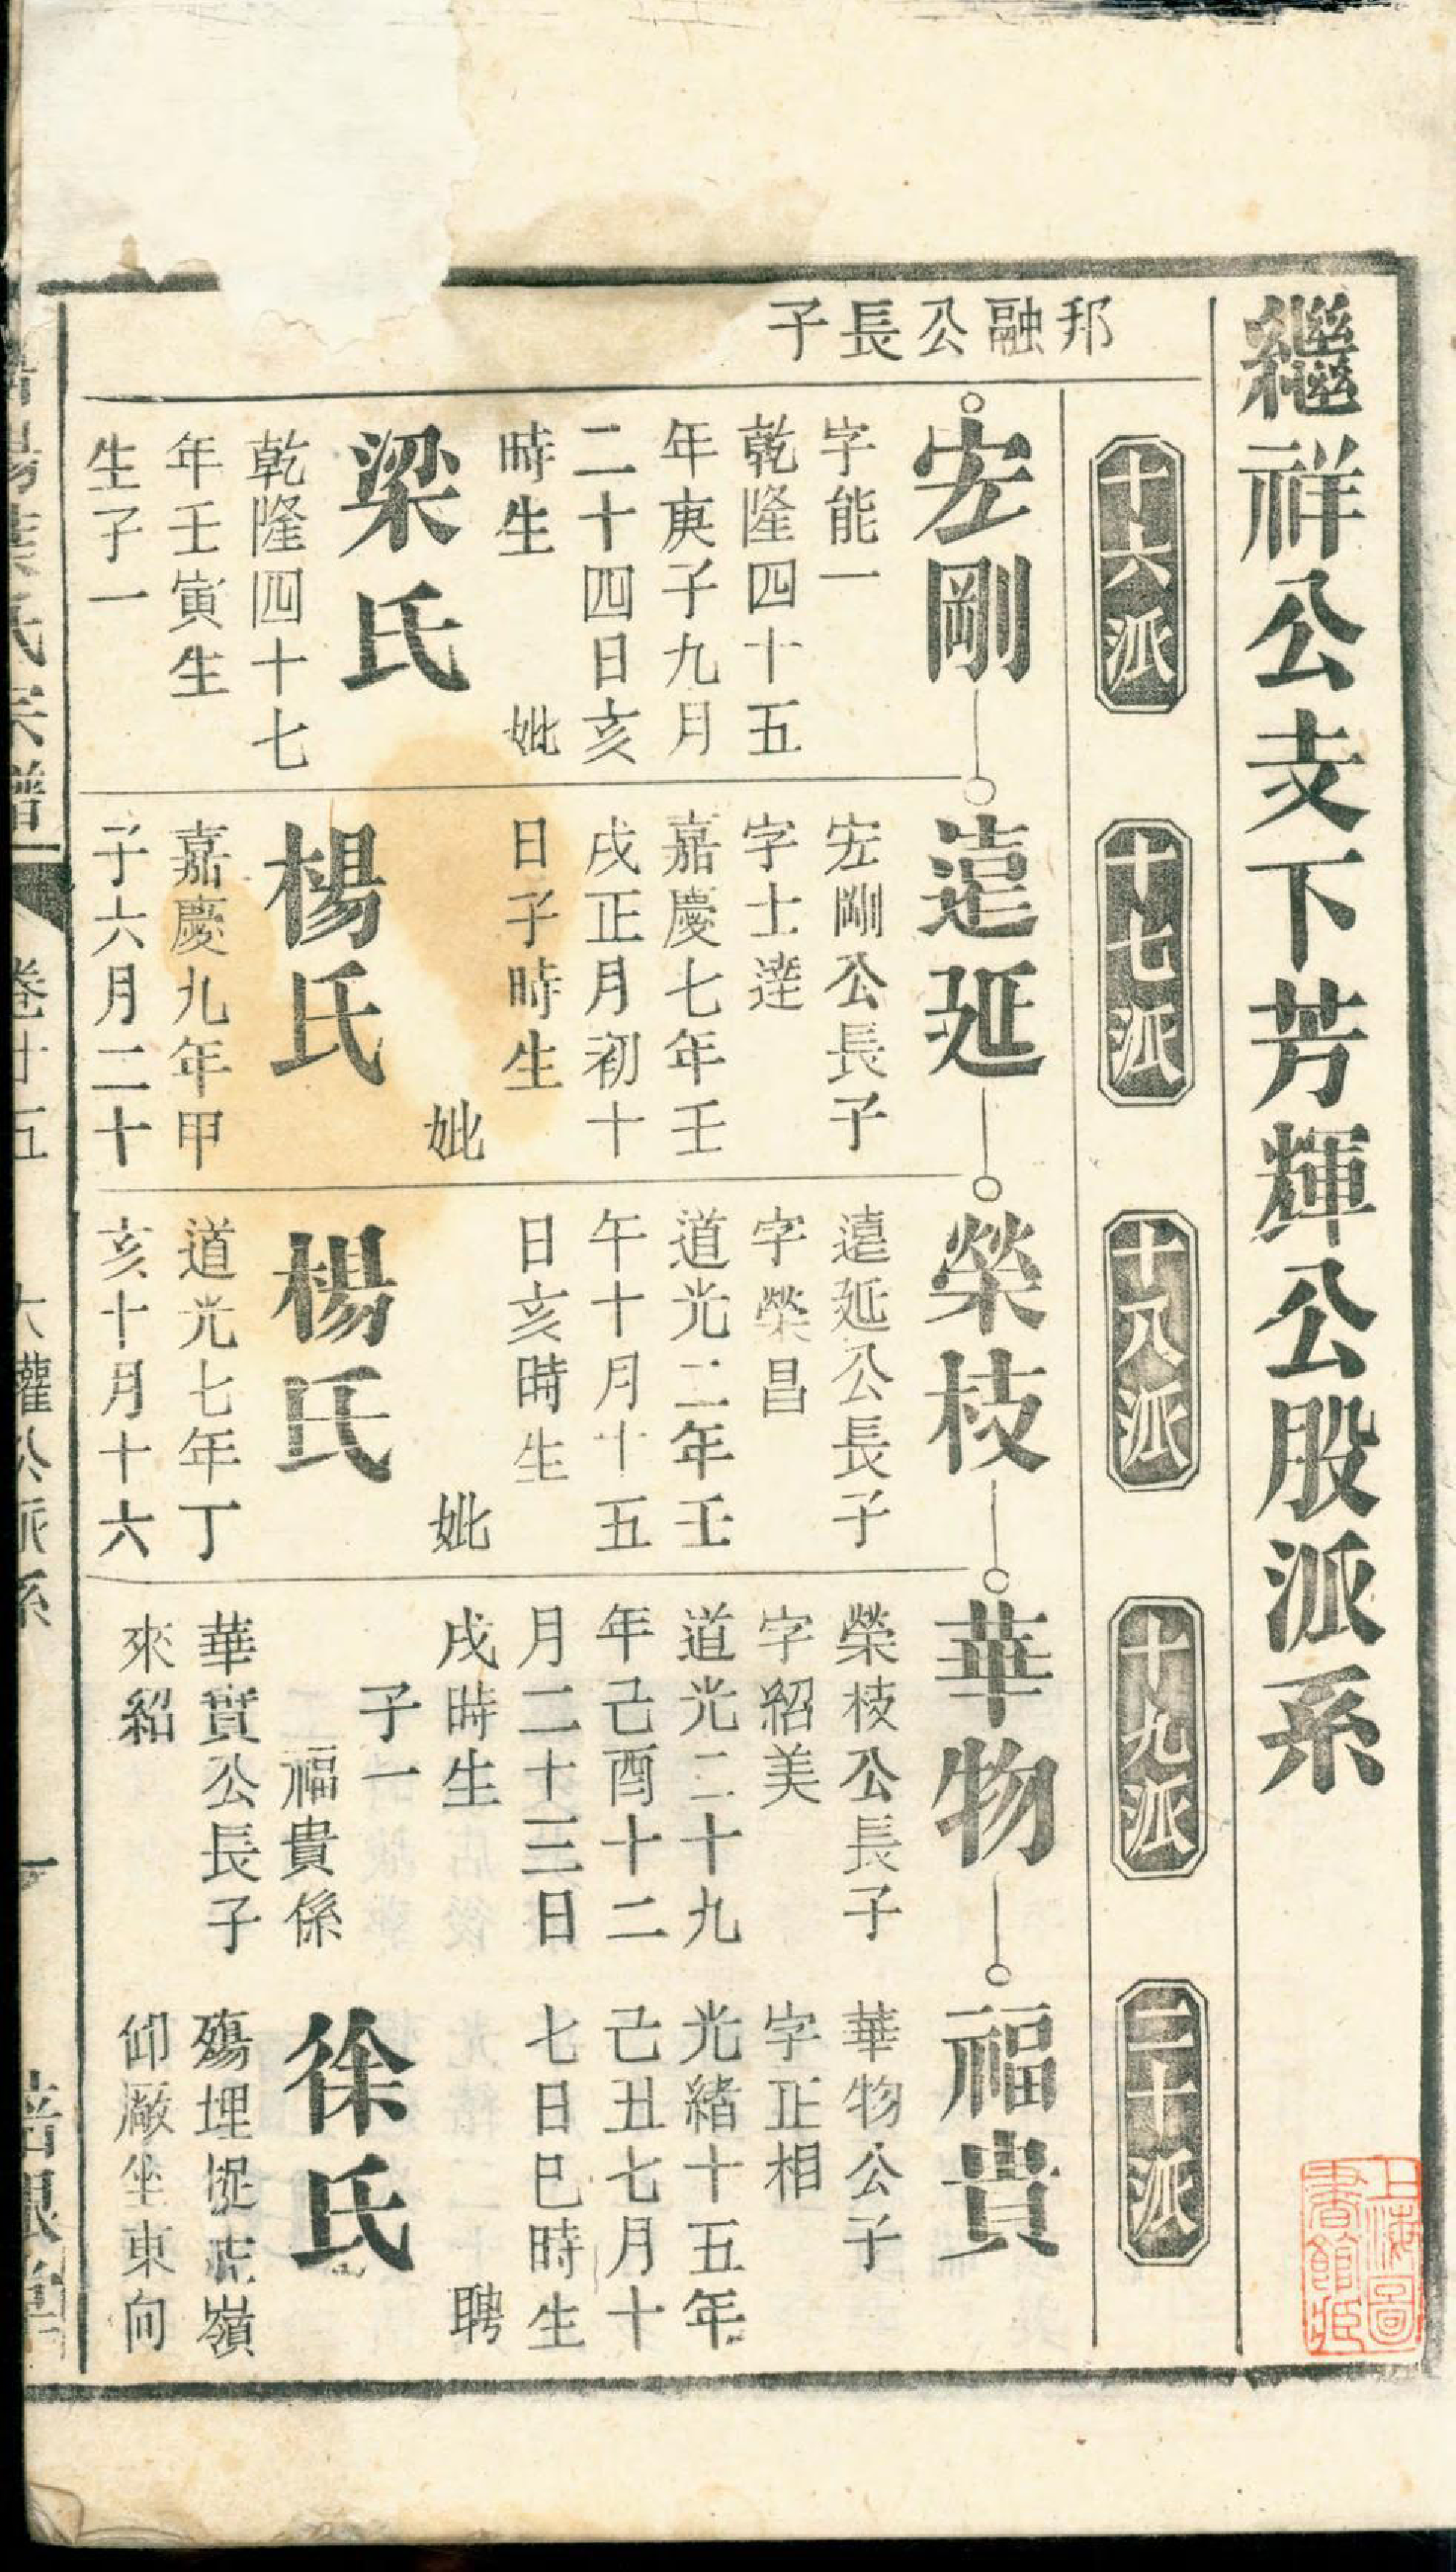 繼祥公支下芳輝公股派系
十六派
十七派
十八派
十九派
二十派
邦融公長子
宏剛
字能一
乾隆四十五
年庚子九月
二十四日亥
時生 妣
梁氏
乾隆四十七
年壬寅生
生子一
遠延
宏剛公長子
字士達
嘉慶七年壬
戌正月初十
日子時生
妣
楊氏
嘉慶九年甲
子六月二十
榮枝
遠延公長子
字榮昌
道光二年壬
午十月十五
日亥時生
妣
楊氏
道光七年丁
亥十月十六
華物
榮枝公長子
字紹美
道光二十九
年己酉十二
月二十三日
戌時生
子一
福貴係
華實公長子
來紹
福貴
華物公子
字正相
光緒十五年
己丑七月十
七日巳時生
聘
徐氏
殤埋 嶺
仰厰坐東向
氏宗譜 卷廿五 權公派系 一
上海圖書館藏